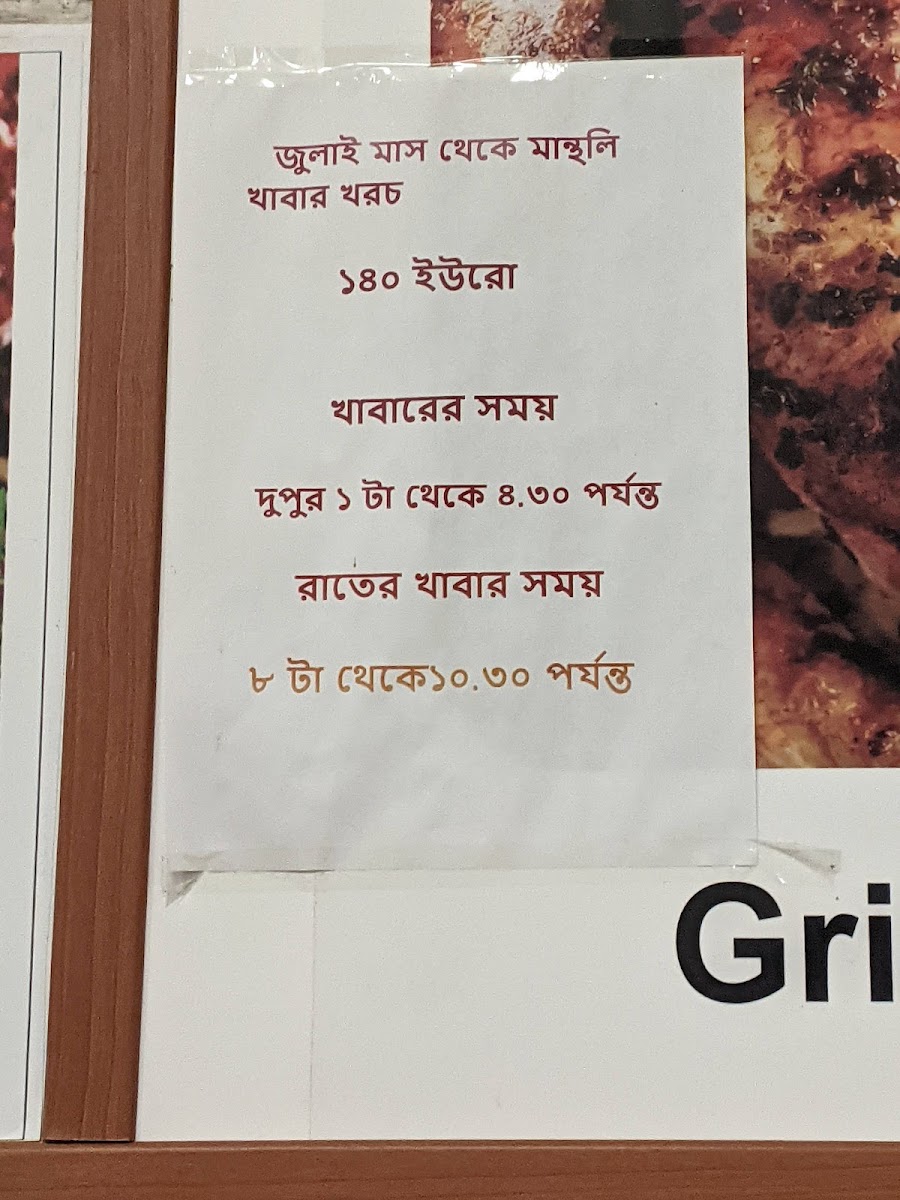 জুলাই মাস থেকে মান্থলি
খাবার খরচ
১৪০ ইউরো
খাবারের সময়
দুপুর ১ টা থেকে ৪.৩০ পর্যন্ত
রাতের খাবার সময়
৮ টা থেকে১০.৩০ পর্যন্ত
Gri